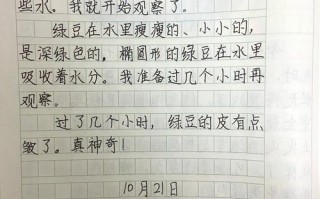 些水。我就开始观察了。
绿豆在水里瘦瘦的、小小的,
是深绿色的,椭圆形的绿豆在水里
吸收着水分。我准备过几个小时再
观察。
过了几个小时,绿豆的皮有点
皱了。真神奇!
10月21日